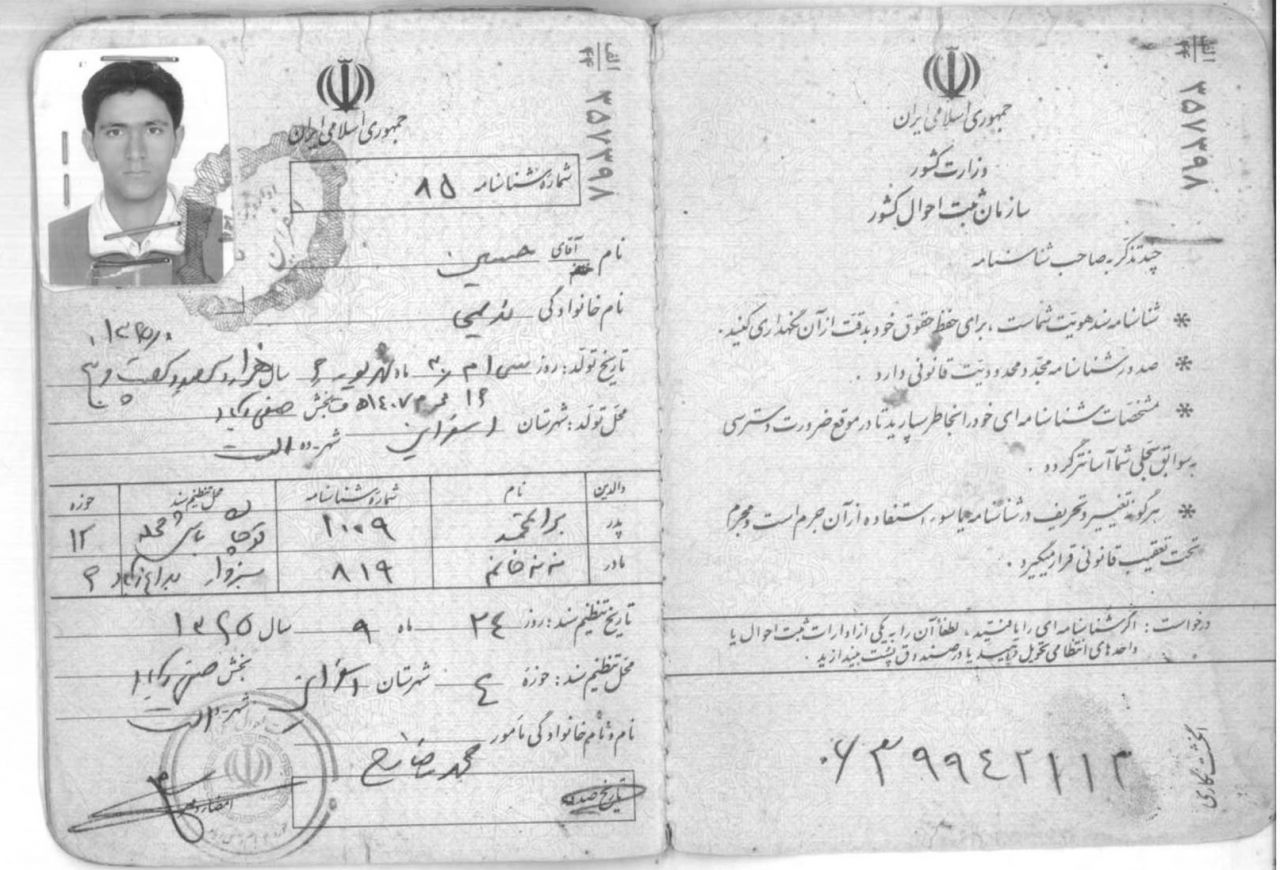 الف
۴۴
۳۵۷۳۹۸
جمهوری اسلامی ایران
وزارت کشور
سازمان ثبت احوال کشور
چند تذکر به صاحب شناسنامه
* شناسنامه سند هویت شماست ، برای حفظ حقوق خود بدقت از آن نگهداری کنید .
* صدور شناسنامه مجدد محدودیت قانونی دارد .
* مشخصات شناسنامه ای خود را بخاطر بسپارید تا در موقع ضرورت دسترسی
به سوابق سجلی شما آسانتر گردد .
* هرگونه تغییر و تحریف در شناسنامه یا سوء استفاده از آن جرم است و مجرم
تحت تعقیب قانونی قرار میگیرد .
درخواست : اگر شناسنامه ای را یافتید ، لطفاً آن را به یکی از ادارات ثبت احوال یا
واحدهای انتظامی تحویل دهید یا در صندوق پست بیندازید .
انگشت نگاری
الف
۴۴
۳۵۷۳۹۸
جمهوری اسلامی ایران
شماره شناسنامه ۸۵
نام آقای خانم حسین
نام خانوادگی
تاریخ تولد : روز سی ام ۳۰ ماه شهریور ۶ سال هزار و سیصد و شصت و پنج
محل تولد : شهرستان اسفراین بخش صفی آباد
شهر ده
والدین نام شماره شناسنامه محل تنظیم سند حوزه
پدر براتمحمد ۱۰۰۹ قوچان ۱۲
مادر ننه خانم ۸۱۹ سبزوار ۶
تاریخ تنظیم سند : روز ۲۴ ماه ۹ سال ۱۳۶۵
محل تنظیم سند : حوزه ۴ شهرستان اسفراین بخش صفی آباد
شهر ده
نام و نام خانوادگی مامور محمد
تاریخ صدور امضاء و مهر